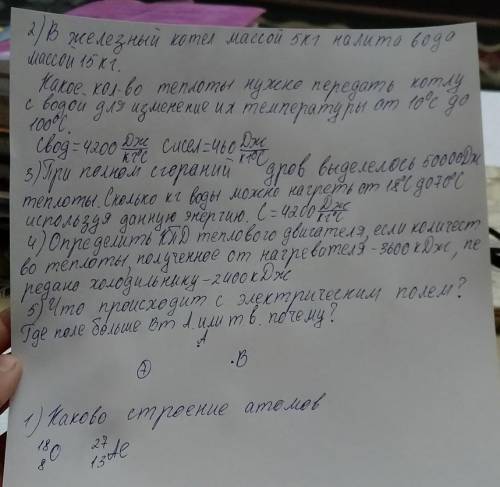 2) В железный котел массой 5кг налита вода
массой 15кг.
Какое кол-во теплоты нужно передать котлу
с водой для изменение их температуры от 10°С до
100°С.
Cвод=4200 Дж/кг°С Cжел=460 Дж/кг°С
3) При полном сгораний дров выделелось 50000Дж
теплоты. Сколько кг воды можно нагреть от 18°С до 70°С
используя данную энергию. С=4200 Дж/кг°С
4) Определить КПД теплового двигателя, если количест
во теплоты, полученное от нагревотеля-3600 кДж, пе
редано холодильнику-2400кДж
5) Что происходит с электрическим полем?
Где поле больше вт А. или т в. почему?
А
+ .В
1) Каково строение атомов
18 8 O 27 13 Al